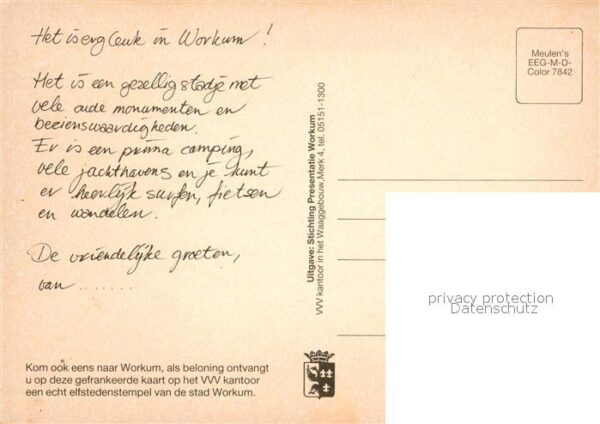 Het is erg leuk in Workum!
Het is een gezellig stadje met
vele oude monumenten en
bezienswaardigheden.
Er is een prima camping,
vele jachthavens en je kunt
er heerlijk surfen, fietsen
en wandelen.
De vriendelijke groeten,
van ........
Kom ook eens naar Workum, als beloning ontvangt
u op deze gefrankeerde kaart op het VVV kantoor
een echt elfstedenstempel van de stad Workum.
Uitgave: Stichting Presentatie Workum
VVV kantoor in het Waaggebouw, Merk 4, tel. 05151-1300
Meulen's
EEG-M-D-
Color 7842
privacy protection
Datenschutz